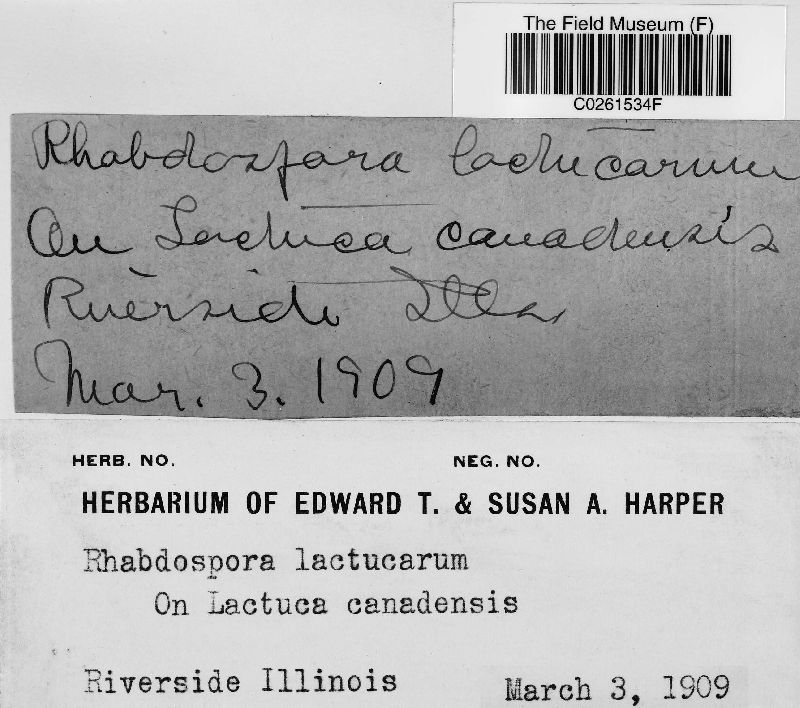 The Field Museum (F)
C0261534F
Rhabdospora lactucarum
On Lactuca canadensis
Riverside Ills
Mar. 3. 1909
HERB. NO. NEG. NO.
HERBARIUM OF EDWARD T. & SUSAN A. HARPER
Rhabdospora lactucarum
On Lactuca canadensis
Riverside Illinois March 3, 1909